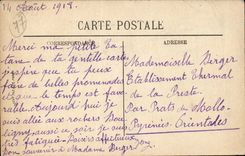 14 Août 1918.
77
CARTE POSTALE
CORRESPONDANCE
ADRESSE
Merci ma petite
de ta gentille carte
j'espère que tu peux
faire de belles promenades
et que le temps est favo
rable. Aujourd'hui je
suis allée aux rochers
suis
très fatiguée - Baisers affectueux
Bon souvenir à Madame Berger
Mademoiselle Berger
Etablissement Thermal
de la Preste
Par Prats de Mollo
Pyrénées Orientales